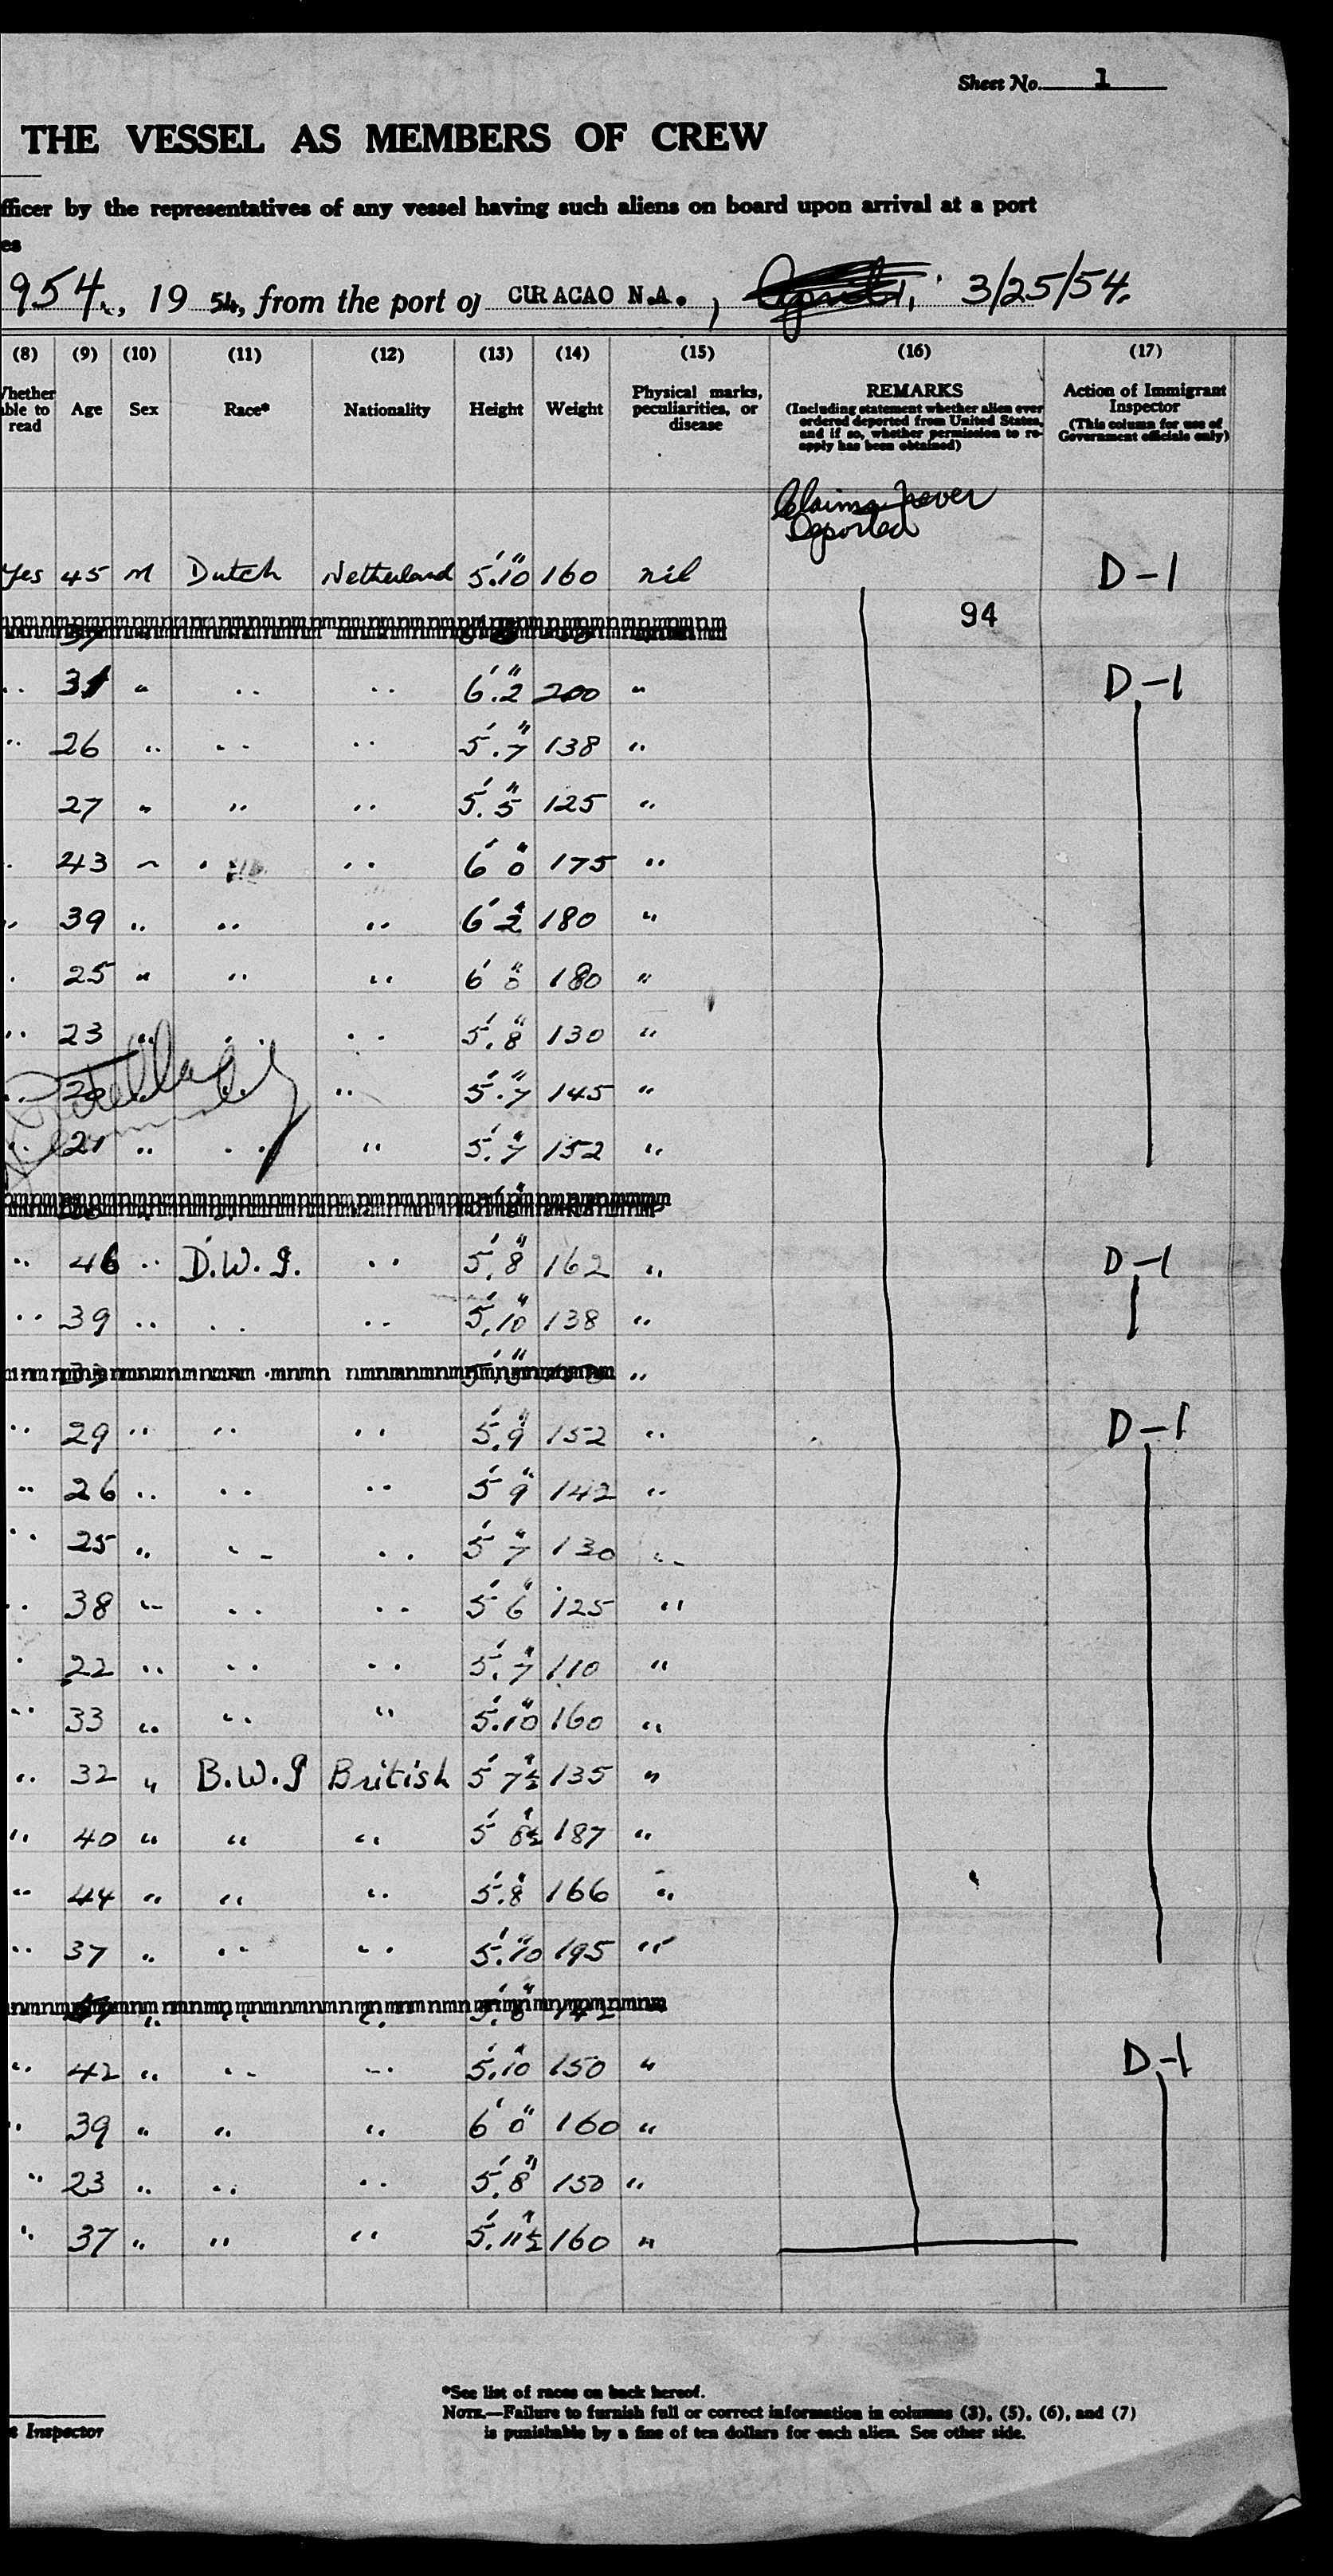 Sheet No. 1
THE VESSEL AS MEMBERS OF CREW
fficer by the representatives of any vessel having such aliens on board upon arrival at a port
es
954., 19 54, from the port of CURACAO N.A., 3/25/54.
(8) (9) (10) (11) (12) (13) (14) (15) (16) (17)
Whether able to read Age Sex Race* Nationality Height Weight Physical marks, peculiarities, or disease REMARKS (Including statement whether alien ever ordered deported from United States, and if so, whether permission to re-apply has been obtained) Action of Immigrant Inspector (This column for use of Government officials only)
Claims never
Deported
Yes 45 M Dutch Netherland 5'.10" 160 nil D-1
94
.. 31 " .. .. 6'.2" 200 " D-1
.. 26 .. .. .. 5'.7" 138 "
27 " " .. 5'.5" 125 "
. 43 " . .. 6' 0" 175 "
.. 39 .. .. .. 6' 2" 180 "
. 25 " .. .. 6' 0" 180 "
.. 23 .. .. .. 5'.8" 130 "
.. .. 5'.7" 145 "
.. 21 .. .. " 5'.7" 152 "
.. 46 .. D.W.I. .. 5'.8" 162 " D-1
.. 39 .. .. .. 5'.10" 138 "
"
.. 29 .. .. .. 5'.9" 152 " D-1
.. 26 .. .. .. 5' 9" 142 "
.. 25 .. .. .. 5' 7" 130 "
.. 38 .. .. .. 5' 6" 125 "
. 22 .. .. .. 5'.7" 110 "
.. 33 .. .. " 5'.10" 160 "
.. 32 " B.W.I British 5' 7½" 135 "
.. 40 " " " 5' 8½" 187 "
.. 44 " " .. 5'.8" 166 "
.. 37 .. .. .. 5'.10" 195 "
.. 42 .. .. .. 5'.10" 150 " D-1
.. 39 " .. .. 6' 0" 160 "
" 23 .. .. .. 5'.8" 150 "
" 37 .. " " 5'.11½" 160 "
*See list of races on back hereof.
NOTE.—Failure to furnish full or correct information in columns (3), (5), (6), and (7)
is punishable by a fine of ten dollars for each alien. See other side.
s Inspector